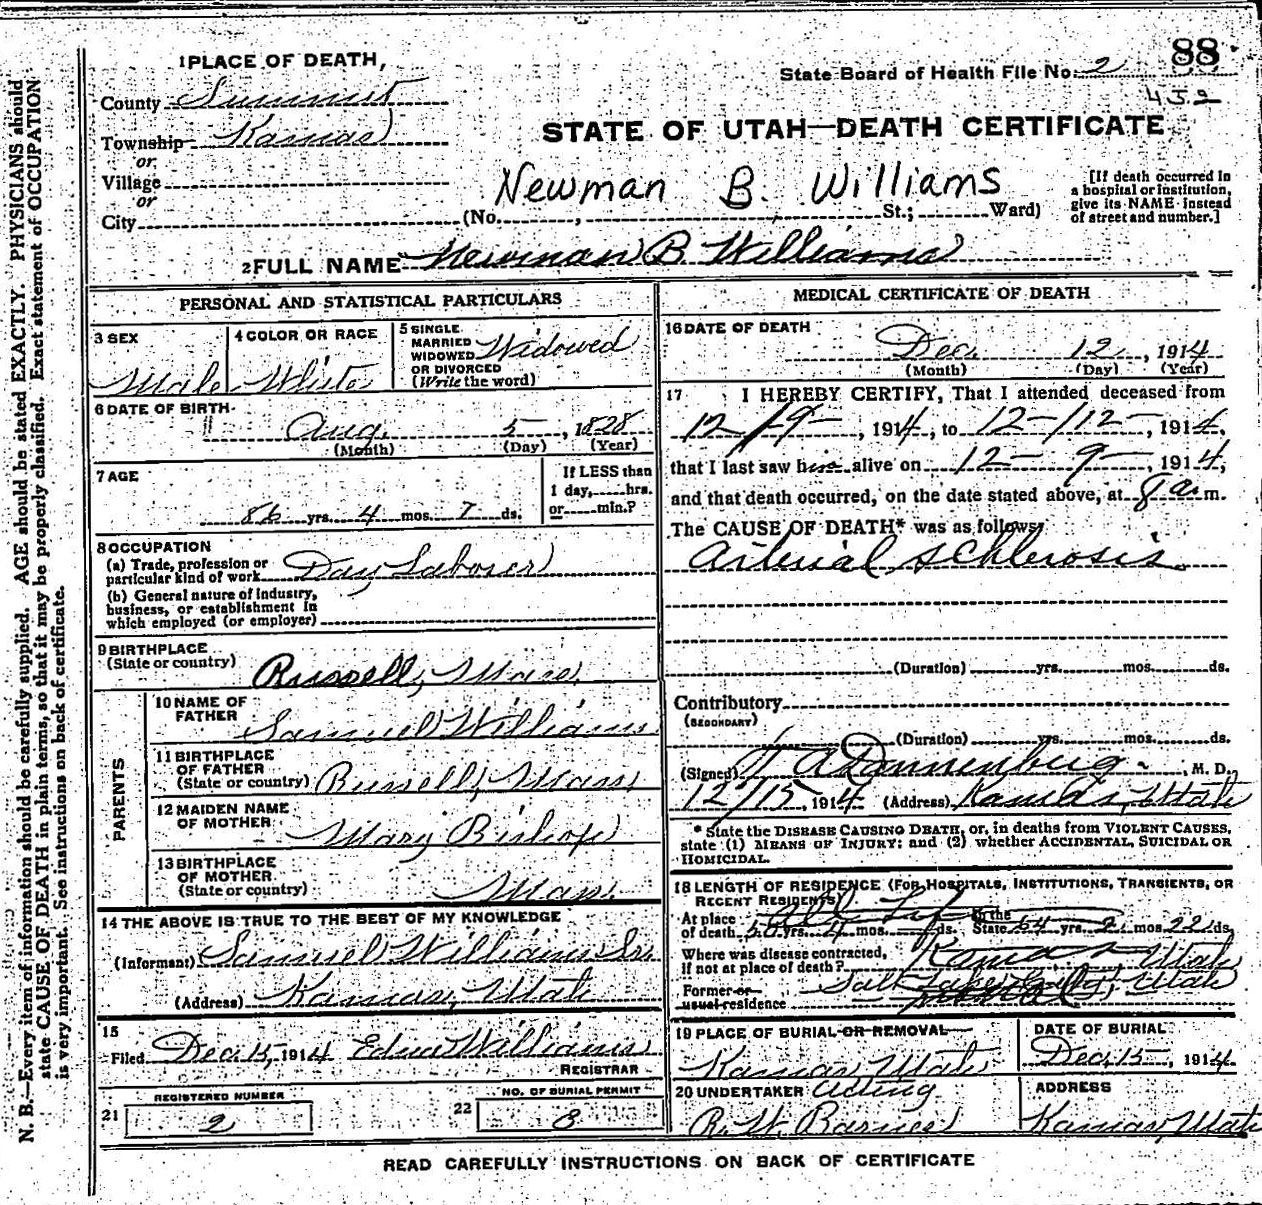 88
State Board of Health File No. 2
452
1 PLACE OF DEATH,
County Summit
Township Kamas
or
Village
or
City
STATE OF UTAH—DEATH CERTIFICATE
Newman B. Williams
(No. , St.; Ward)
[If death occurred in
a hospital or institution,
give its NAME instead
of street and number.]
2 FULL NAME Newman B Williams
PERSONAL AND STATISTICAL PARTICULARS
3 SEX
Male
4 COLOR OR RACE
White
5 SINGLE
MARRIED
WIDOWED
OR DIVORCED
(Write the word)
Widowed
6 DATE OF BIRTH
Aug. 5 , 1828
(Month) (Day) (Year)
7 AGE
86 yrs. 4 mos. 7 ds.
If LESS than
1 day, hrs.
or min.?
8 OCCUPATION
(a) Trade, profession or
particular kind of work Day Laborer
(b) General nature of industry,
business, or establishment in
which employed (or employer)
9 BIRTHPLACE
(State or country) Russell, Mass.
PARENTS
10 NAME OF
FATHER
Samuel Williams
11 BIRTHPLACE
OF FATHER
(State or country) Russell, Mass.
12 MAIDEN NAME
OF MOTHER
Mary Bishop
13 BIRTHPLACE
OF MOTHER
(State or country) Mass.
14 THE ABOVE IS TRUE TO THE BEST OF MY KNOWLEDGE
(Informant) Samuel Williams Sr.
(Address) Kamas, Utah
15
Filed Dec. 15, 1914 Williams
REGISTRAR
21 REGISTERED NUMBER
2
22 NO. OF BURIAL PERMIT
3
MEDICAL CERTIFICATE OF DEATH
16 DATE OF DEATH
Dec. 12 , 1914
(Month) (Day) (Year)
17 I HEREBY CERTIFY, That I attended deceased from
12/9- , 1914, to 12-/12- , 1914,
that I last saw him alive on 12- 9- , 1914,
and that death occurred, on the date stated above, at 8 a m.
The CAUSE OF DEATH* was as follows:
Arterial Schlerosis
(Duration) yrs. mos. ds.
Contributory
(SECONDARY)
(Duration) yrs. mos. ds.
(Signed) Dannenburg , M. D.
12/15, 1914 (Address) Kamas, Utah
* State the DISEASE CAUSING DEATH, or, in deaths from VIOLENT CAUSES,
state (1) MEANS OF INJURY; and (2) whether ACCIDENTAL, SUICIDAL OR
HOMICIDAL.
18 LENGTH OF RESIDENCE (FOR HOSPITALS, INSTITUTIONS, TRANSIENTS, OR
RECENT RESIDENTS)
At place In the
of death yrs. 4 mos. ds. State 64 yrs. 2 mos. 22 ds.
Where was disease contracted,
if not at place of death? Kamas Utah
Former or
usual residence Salt Lake City, Utah
19 PLACE OF BURIAL OR REMOVAL
Kamas Utah
DATE OF BURIAL
Dec. 15-, 1914
20 UNDERTAKER Acting
R. W. Barnes
ADDRESS
Kamas, Utah
READ CAREFULLY INSTRUCTIONS ON BACK OF CERTIFICATE
N. B.—Every item of information should be carefully supplied. AGE should be stated EXACTLY. PHYSICIANS should
state CAUSE OF DEATH in plain terms, so that it may be properly classified. Exact statement of OCCUPATION
is very important. See instructions on back of certificate.